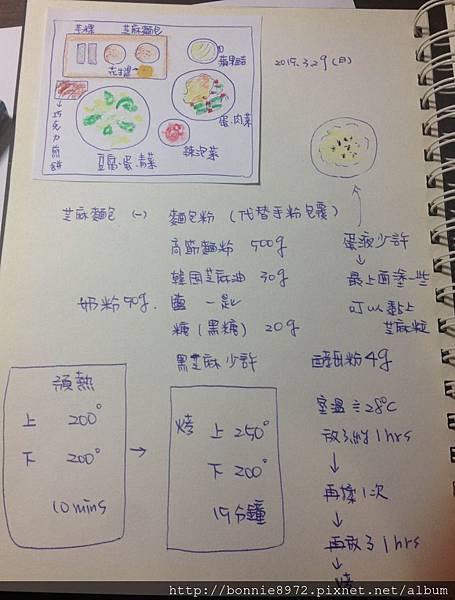 芝麻麵包
花生醬
蘋果醋
蛋.肉菜
辣泡菜
豆腐.蛋.青菜
巧克力煎餅
2015.3.29 (日)
芝麻麵包 (一) 麵包粉 (代替手粉包覆)
高筋麵粉 500g
韓国芝麻油 30g
奶粉 50g. 鹽 一匙
糖 (黑糖) 20g
黑芝麻少許
酵母粉 4g
蛋液少許
↓
最上面塗一些
可以黏上
芝麻粒
預熱
上 200°
下 200°
10 mins
→
烤 上 250°
下 200°
19分鐘
室溫 ≒ 28°C
放了約 1 hrs
↓
再揉 1 次
↓
再放了 1 hrs
↓
烤
http://bonnie8972.pixnet.net/album